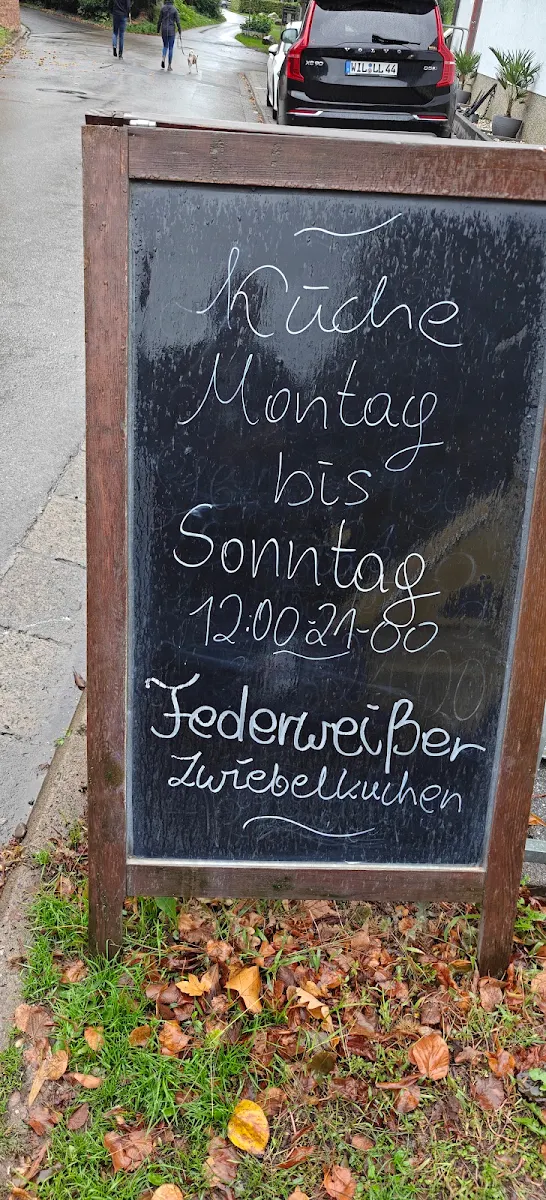 VOLVO
XC90
WIL LL 44
D5
Küche
Montag
bis
Sonntag
12:00-21-00
Federweißer
Zwiebelkuchen